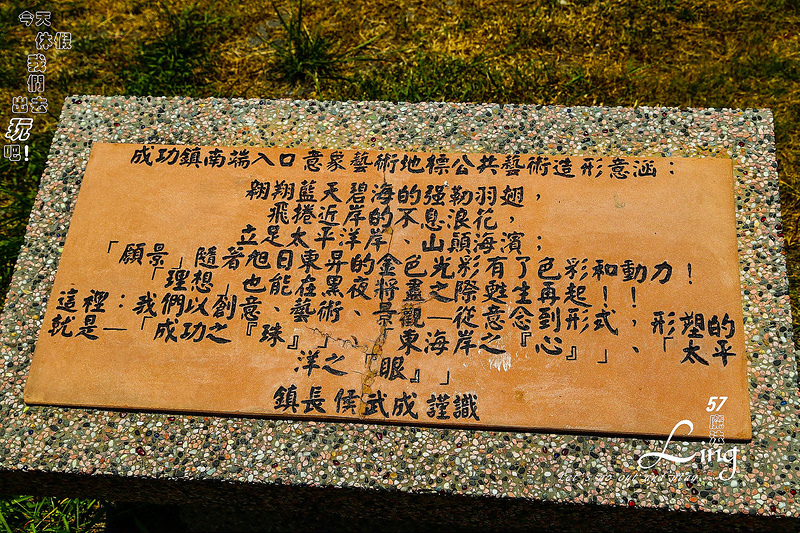 今天
休假
我們
出去
玩
吧!
成功鎮南端入口意象藝術地標公共藝術造形意涵：
翱翔藍天碧海的强勁羽翅，
飛捲近岸的不息浪花，
立足太平洋岸、山巔海濱；
「願景」隨著旭日東昇的金色光彩有了色彩和動力！
「理想」也能在黑夜將盡之際甦生再起！！
這裡：我們以創意、藝術、景觀—從意念到形式，形塑的
就是—「成功之『珠』」「東海岸之『心』」、「太平
洋之『眼』」
鎮長 侯武成 謹識
57
Ling